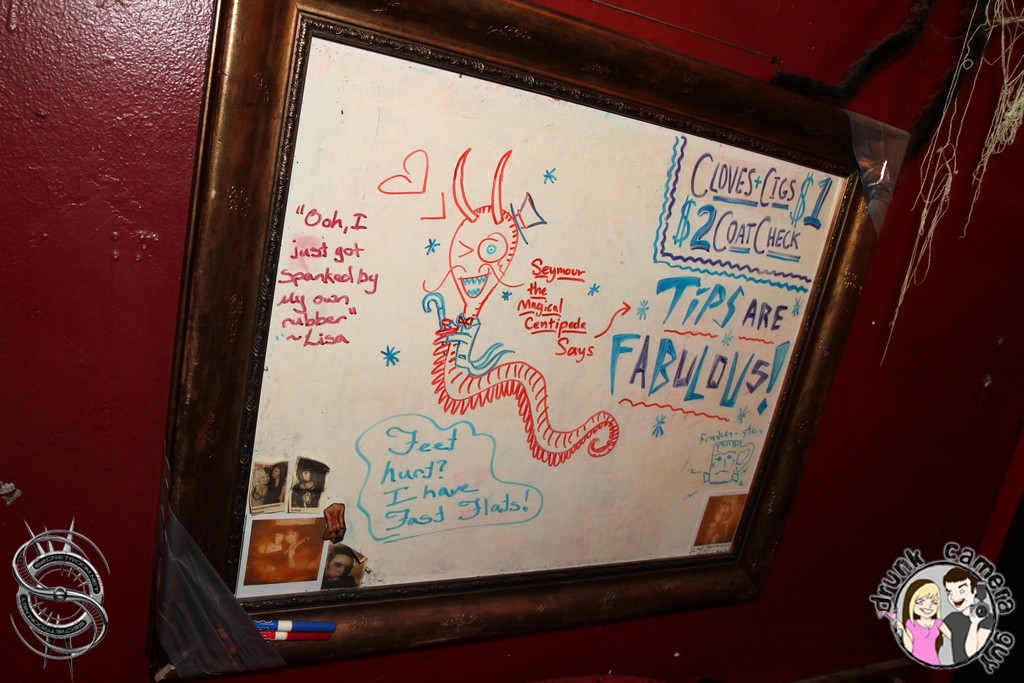 "Ooh, I
just got
spanked by
my own
rubber"
~Lisa
Seymour
the
Magical
Centipede
Says
CLOVES + CIGS $1
$2 COAT CHECK
TIPS ARE
FABULOUS!
Franken-stein
Feet
hurt?
I have
Fast Flats!
drunk camera guy